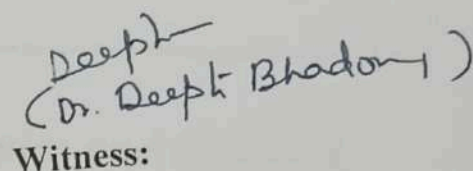 Deepti
(Dr. Deepti Bhadoury)
Witness: